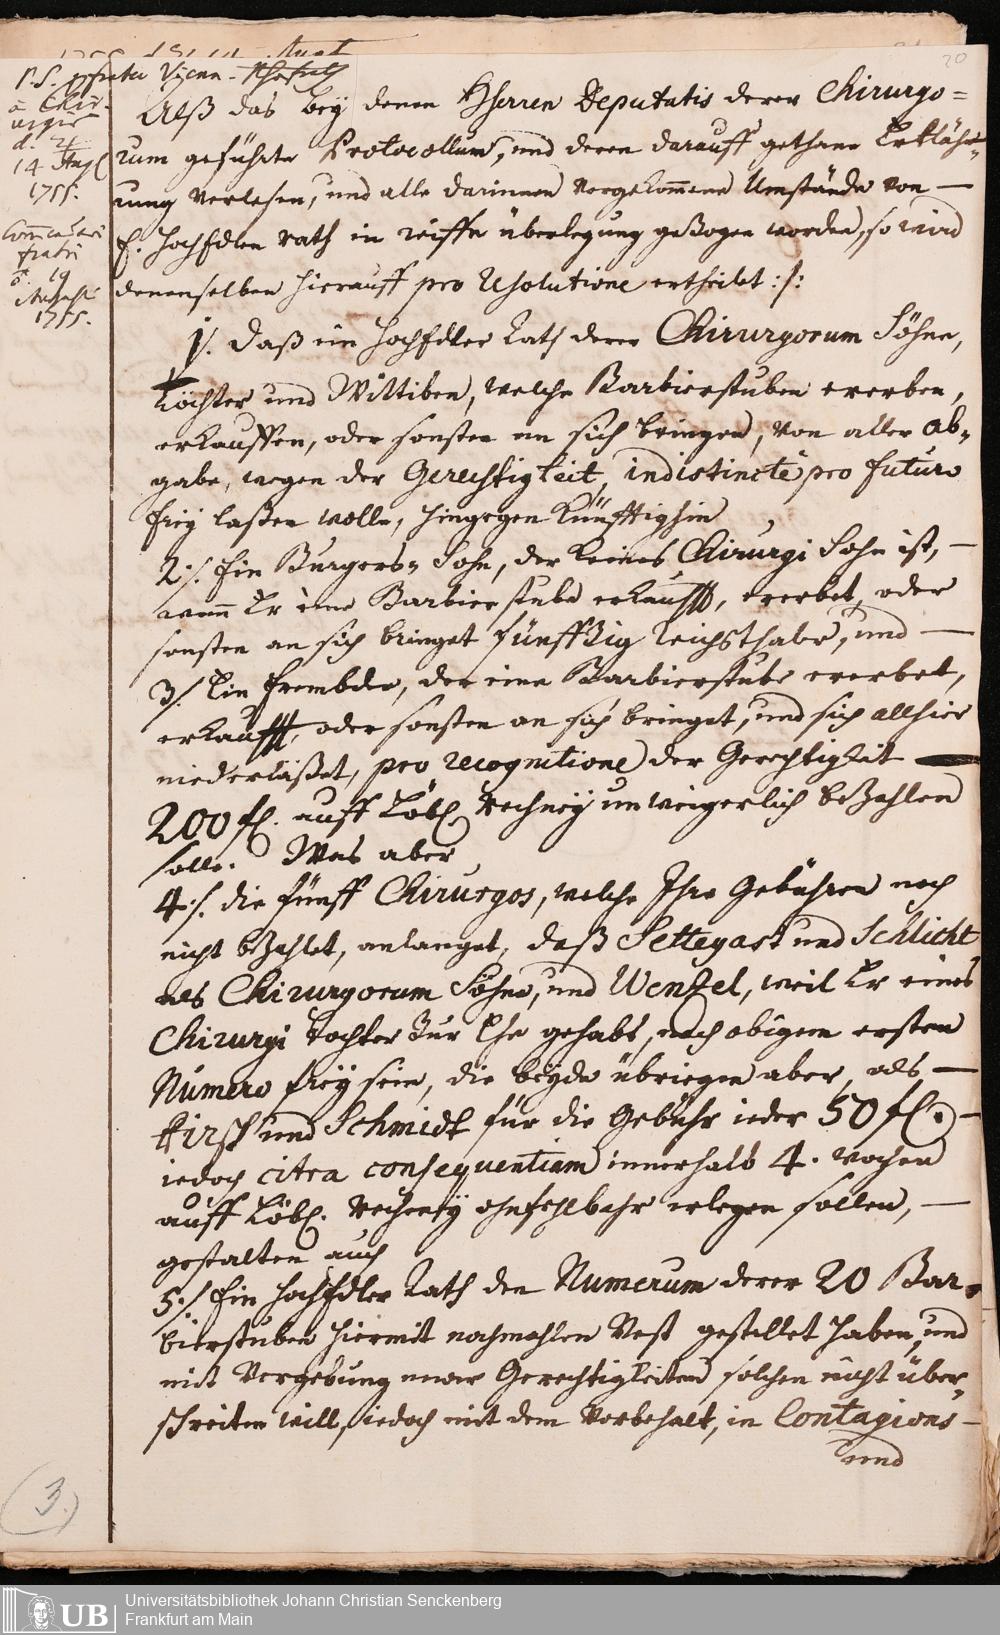 20
14 Aug.
1755.
Comunicari
fratri
19
1755.
Alß das bey denen HHerren Deputatis derer Chirurgo=
rum geführte Protocollum, und deren darauff gethane Erkläh-
rung verlesen, und alle darinnen vorgekommene Umstände von —
E. HochEdlen Rath in reiffe überlegung gezogen worden, so wird
denenselben hierauff pro Resolutione ertheilet :/:
1/. Daß ein HochEdler Rath derer Chirurgorum Söhne,
Töchter und Wittiben, welche Barbierstuben ererben,
erkauffen, oder sonsten an sich bringen, von aller Ab=
gabe, wegen der Gerechtigkeit, indistincte pro futuro
frey laßen wolle, hingegen künfftighin
2./. Ein Burgers= Sohn, der keines Chirurgi Sohn ist, —
wenn Er eine Barbierstube erkaufft, ererbet, oder
sonsten an sich bringet fünffzig Reichsthaler, und —
3/. Ein frembder, der eine Barbierstube ererbet,
erkaufft, oder sonsten an sich bringet, und sich allhier
niederläßet, pro recognitione der Gerechtigkeit —
200 fl. auff Löbl. Rechney unweigerlich bezahlen
solle. Was aber
4./. die fünff Chirurgos, welche Ihre Gebühren noch
nicht bezahlet, anlanget, daß Settegast und Schlicht
als Chirurgorum Söhne, und Wenzel, weil Er eines
Chirurgi Tochter zur Ehe gehabt, nach obigem ersten
Numero frey sein, die beyde übriegen aber, als —
Hirsch und Schmidt für die Gebühr ieder 50 fl. —
iedoch citra consequentiam innerhalb 4. Wochen
auff Löbl. Rechney ohnfehlbahr erlegen sollen, —
gestalten auch
5./. Ein HochEdler Rath den Numerum derer 20 Bar=
bierstuben hiermit nochmahlen Vest gestellet haben, und
mit Vergebung neuer Gerechtigkeiten solchen nicht über=
schreiten will, iedoch mit dem Vorbehalt, in Contagions-
und
3.
UB
Universitätsbibliothek Johann Christian Senckenberg
Frankfurt am Main